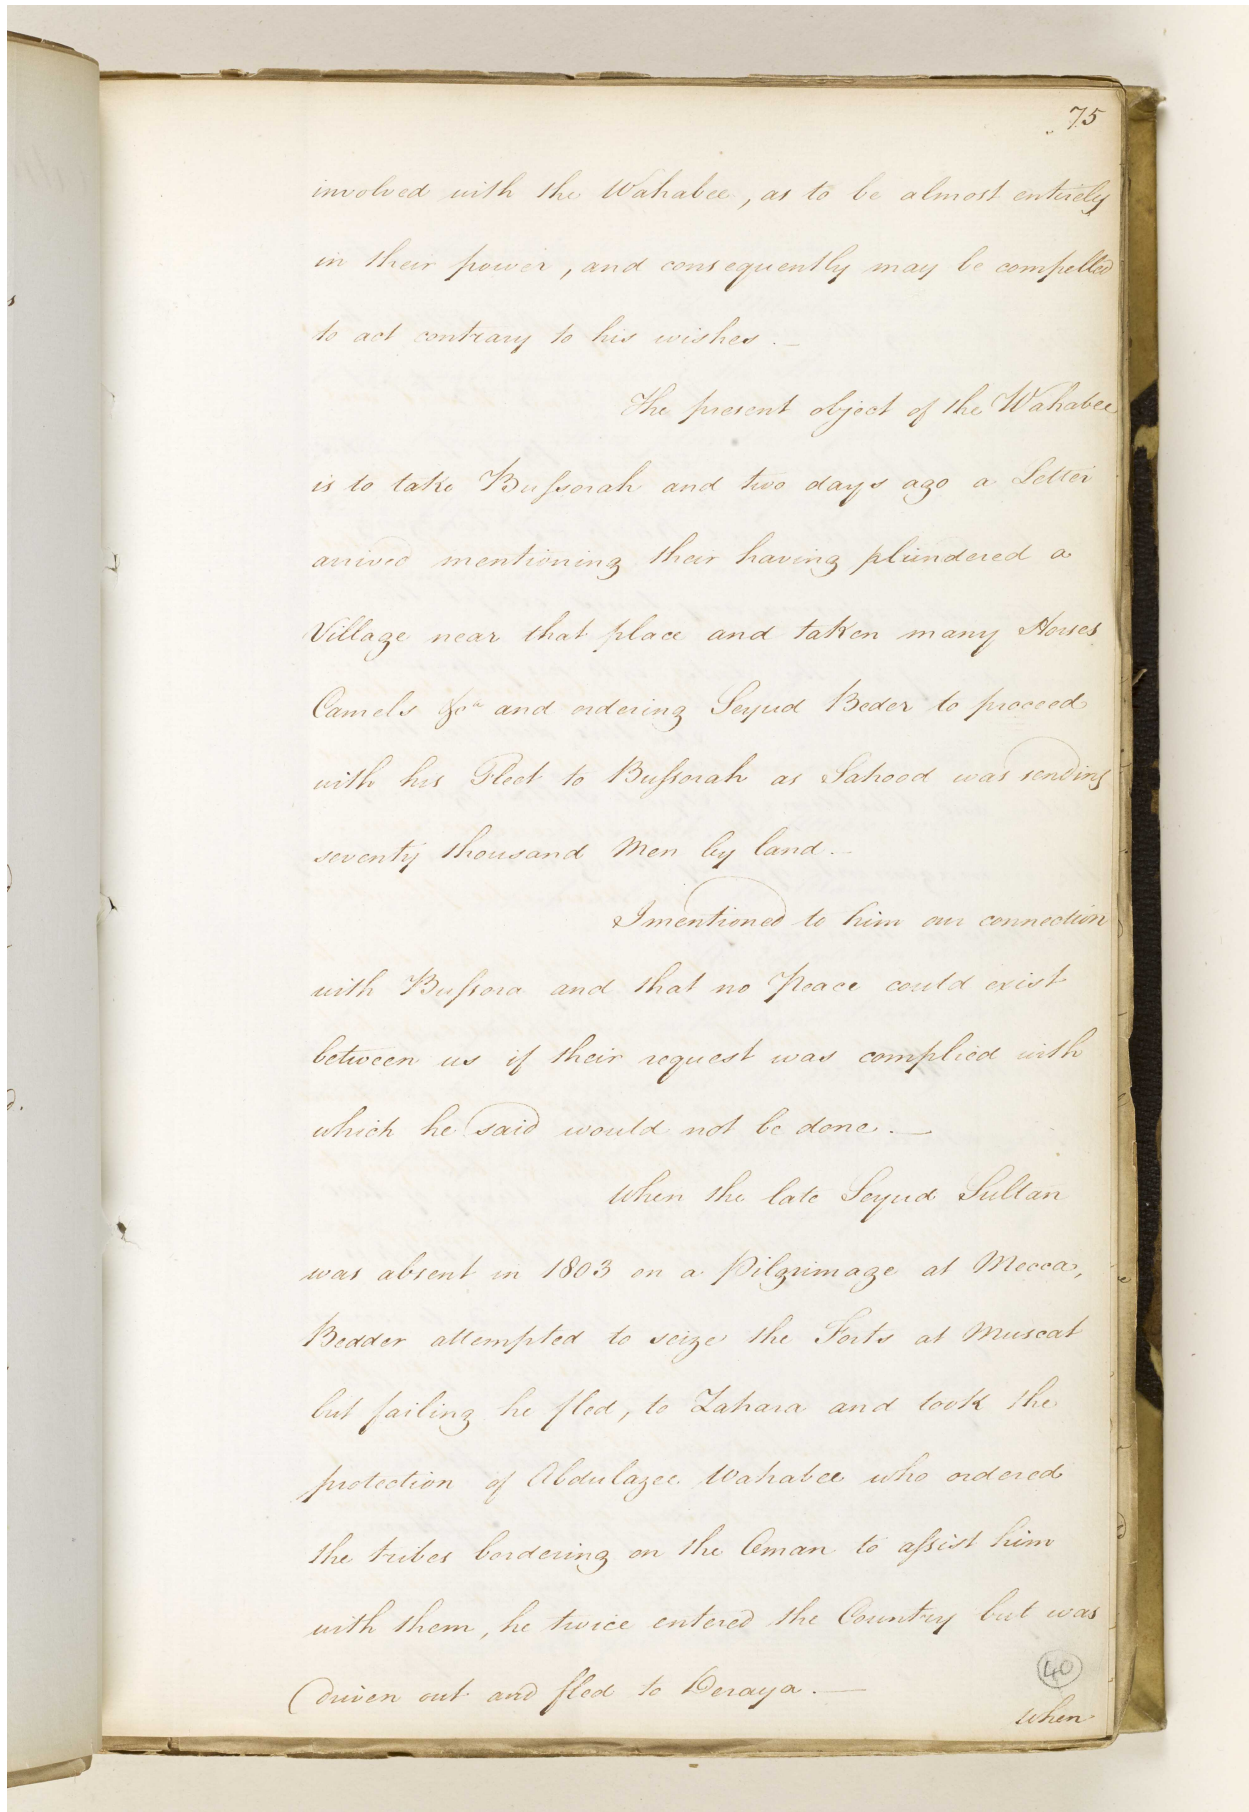 75
involved with the Wahabee, as to be almost entirely
in their power, and consequently may be compelled
to act contrary to his wishes. —
The present object of the Wahabee
is to take Bufsorah and two days ago a Letter
arrived mentioning their having plundered a
Village near that place and taken many Horses
Camels &ca and ordering Seyud Beder to proceed
with his Fleet to Bufsorah as Sahood was sending
seventy thousand Men by land. —
I mentioned to him our connection
with Bufsora and that no Peace could exist
between us if their request was complied with
which he said would not be done. —
When the late Seyud Sultan
was absent in 1803 on a Pilgrimage at Mecca,
Bedder attempted to seize the Forts at Muscat
but failing he fled, to Zahara and took the
protection of Abdulazee Wahabee who ordered
the tribes bordering on the Oman to afsist him
with them, he twice entered the Country but was
driven out and fled to Deraya. —
40
When